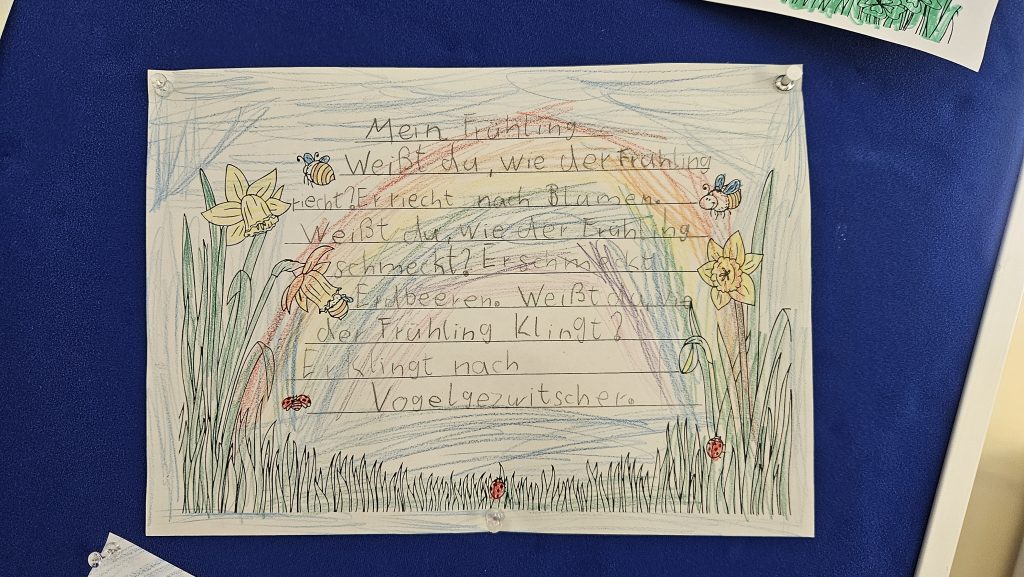 Mein Frühling
Weißt du, wie der Frühling
riecht? Er riecht nach Blumen.
Weißt du, wie der Frühling
schmeckt? Er schmeckt
Erdbeeren. Weißt du, wie
der Frühling Klingt?
Er Klingt nach
Vogelgezwitscher.